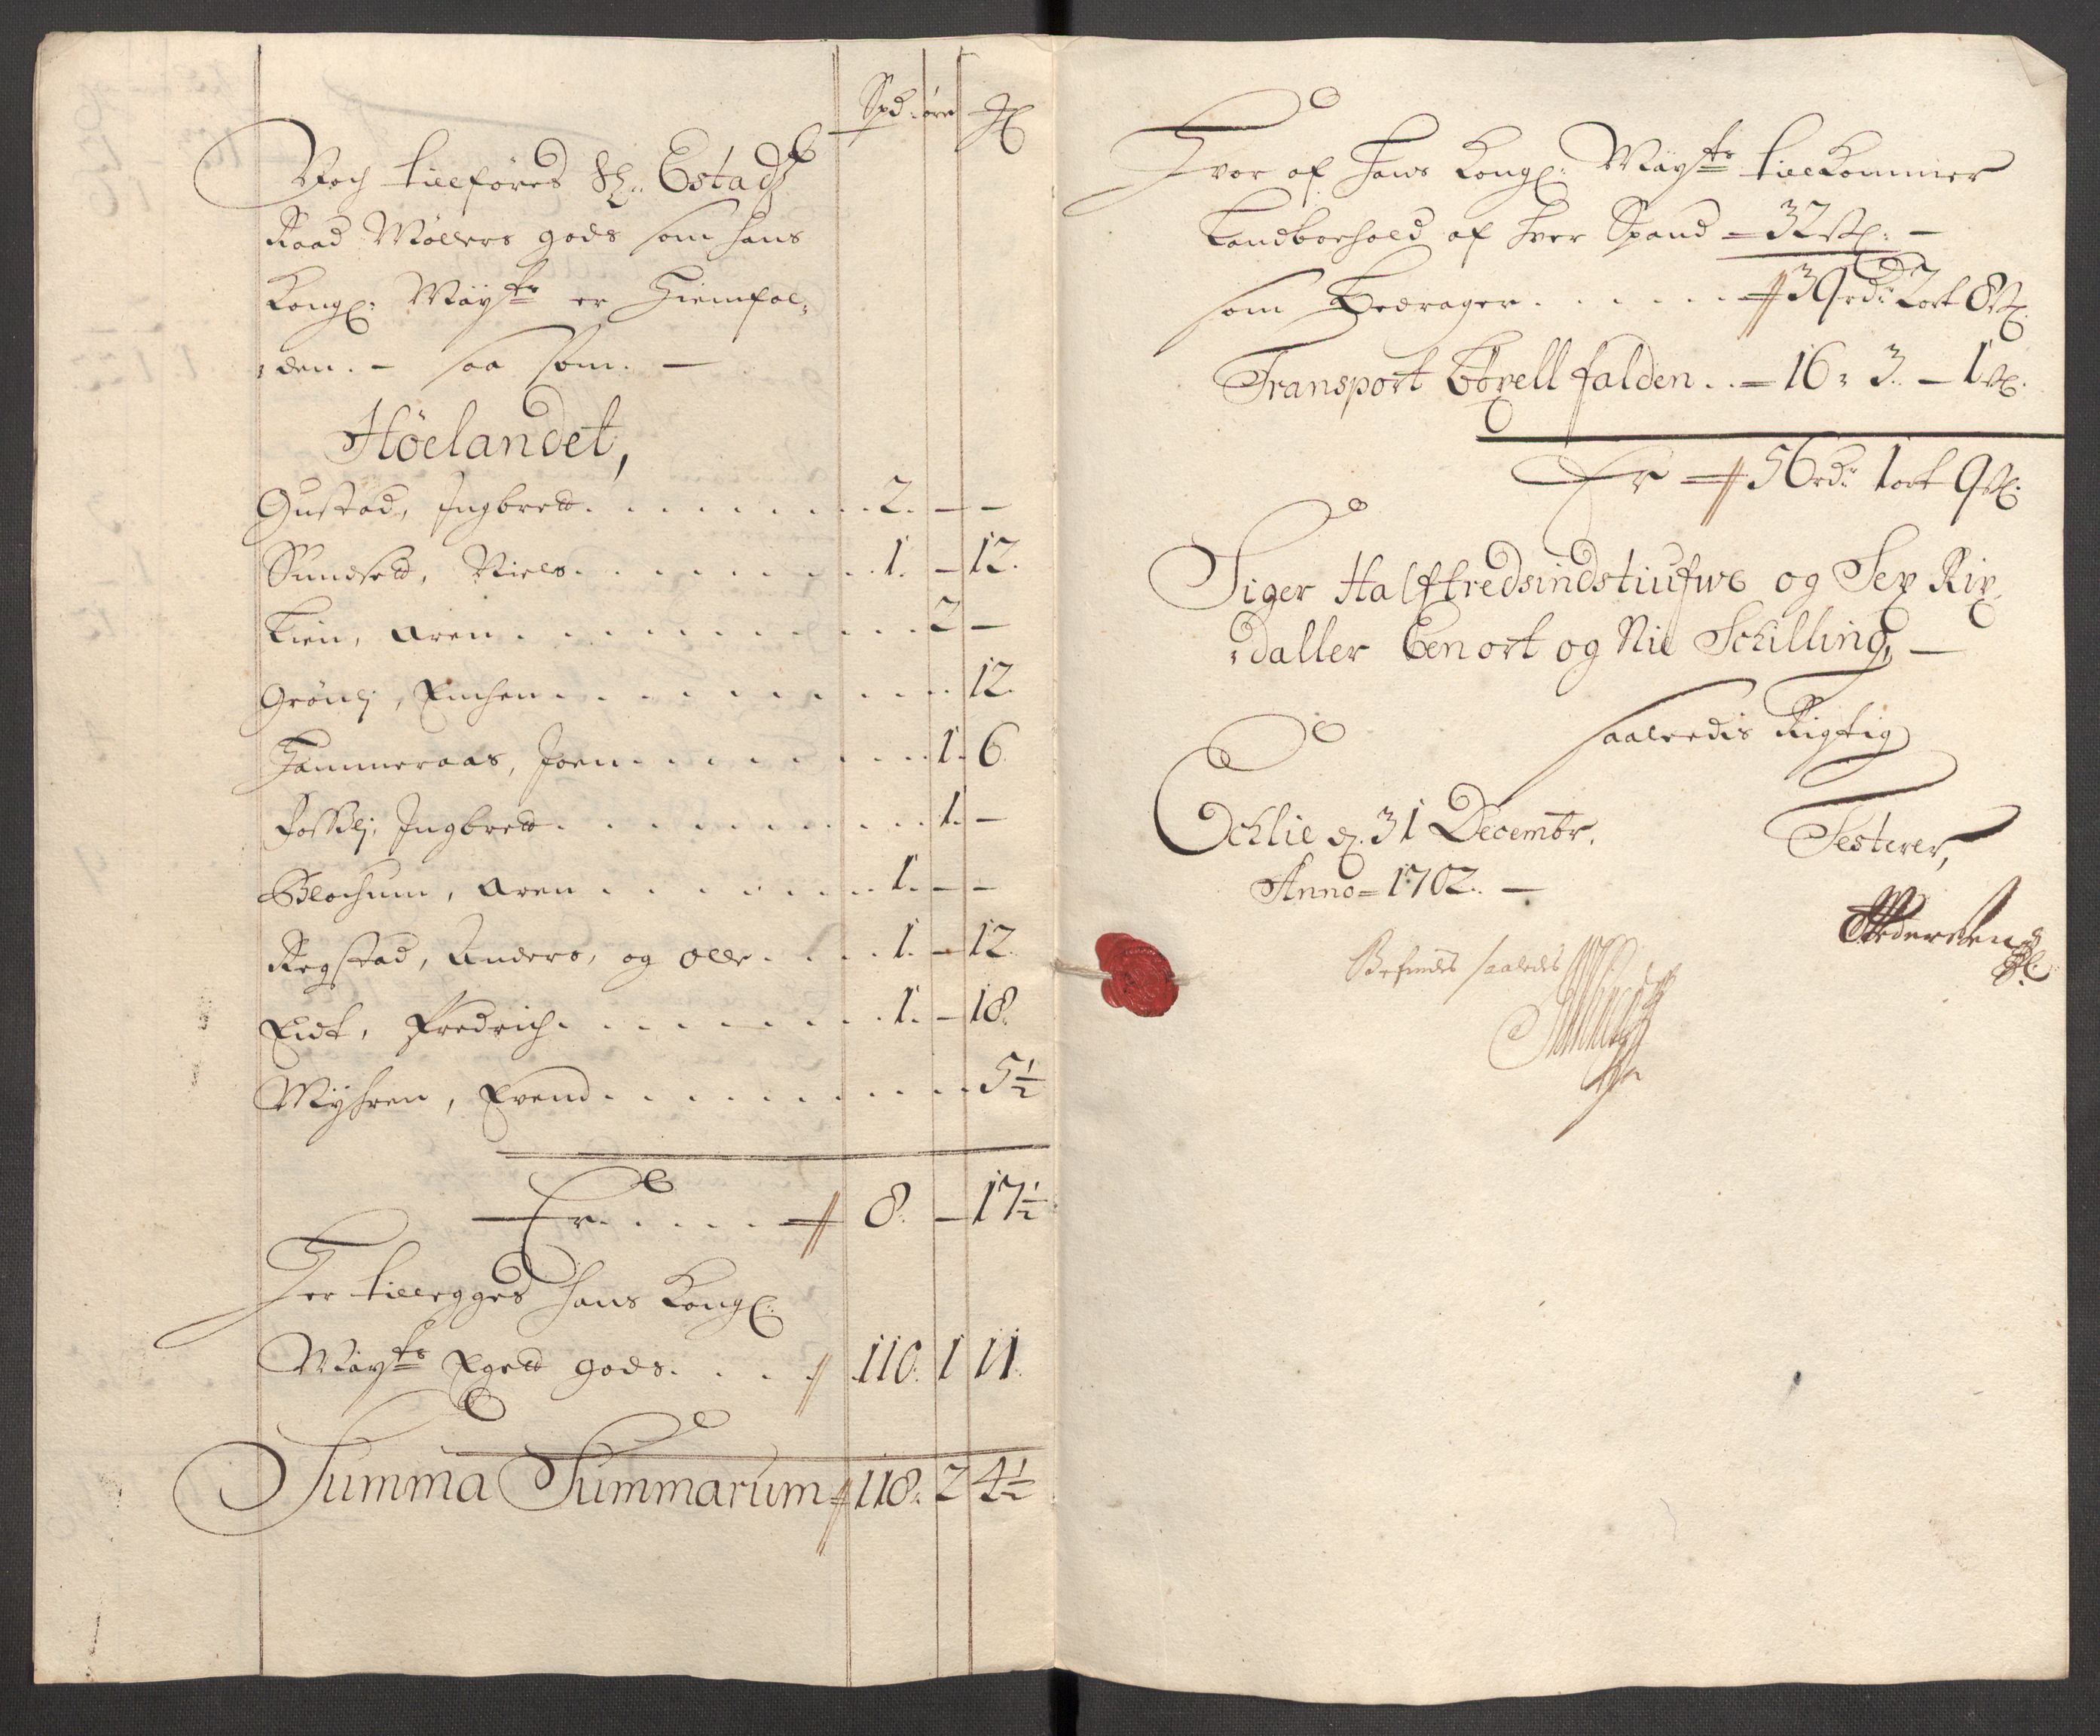 Spd. øre
Noch tillføres Sl. Estads
Raad Møllers gods som hans
Kongl: Mayts er Hiemfal-
den. - saa som. -
Høelandet,
Gustad, Ingbret . . . . . . . . 2. - -
Sundset, Niels . . . . . . . . 1. - 12.
Lien, Aren . . . . . . . . . . 2 -
Grønlj, . . . . . . . . . . 12.
Hammeraas, Joen . . . . . . . . 1. 6
Fossdlj, Ingbret . . . . . . . . 1. -
Blochum, Aren . . . . . . . 1. - -
Regstad, Anders, og Olle . . . . 1. - 12.
Eidt, Fredrich . . . . . . . . 1. - 18.
Myhren, Evend . . . . . . . . . . 5½
Er . . . . . 8. - 17½
Her tillegges hans Kongl:
Mayts Eget gods . . . . 110. 1 11.
Summa Summarum 118. 2 4½
Hvor af Hans Kongl: Mayts tillkommer
Landboehold af hver Spand - 32 s: -
som bedrager . . . . . . 39 rd 2 ort 8 s.
Transport Bøxell falden . . - 16 : 3. - 1 s.
Er 56 rd: 1 ort 9 s.
Siger Halftredsindstiufwe og Sex Rix-
daller Een ort og Nie Schilling, -
saaledis Rigtig
Echlie d. 31 Decembr.
Testerer,
Anno - 1702. -
Pedersen
Befindes saaledes